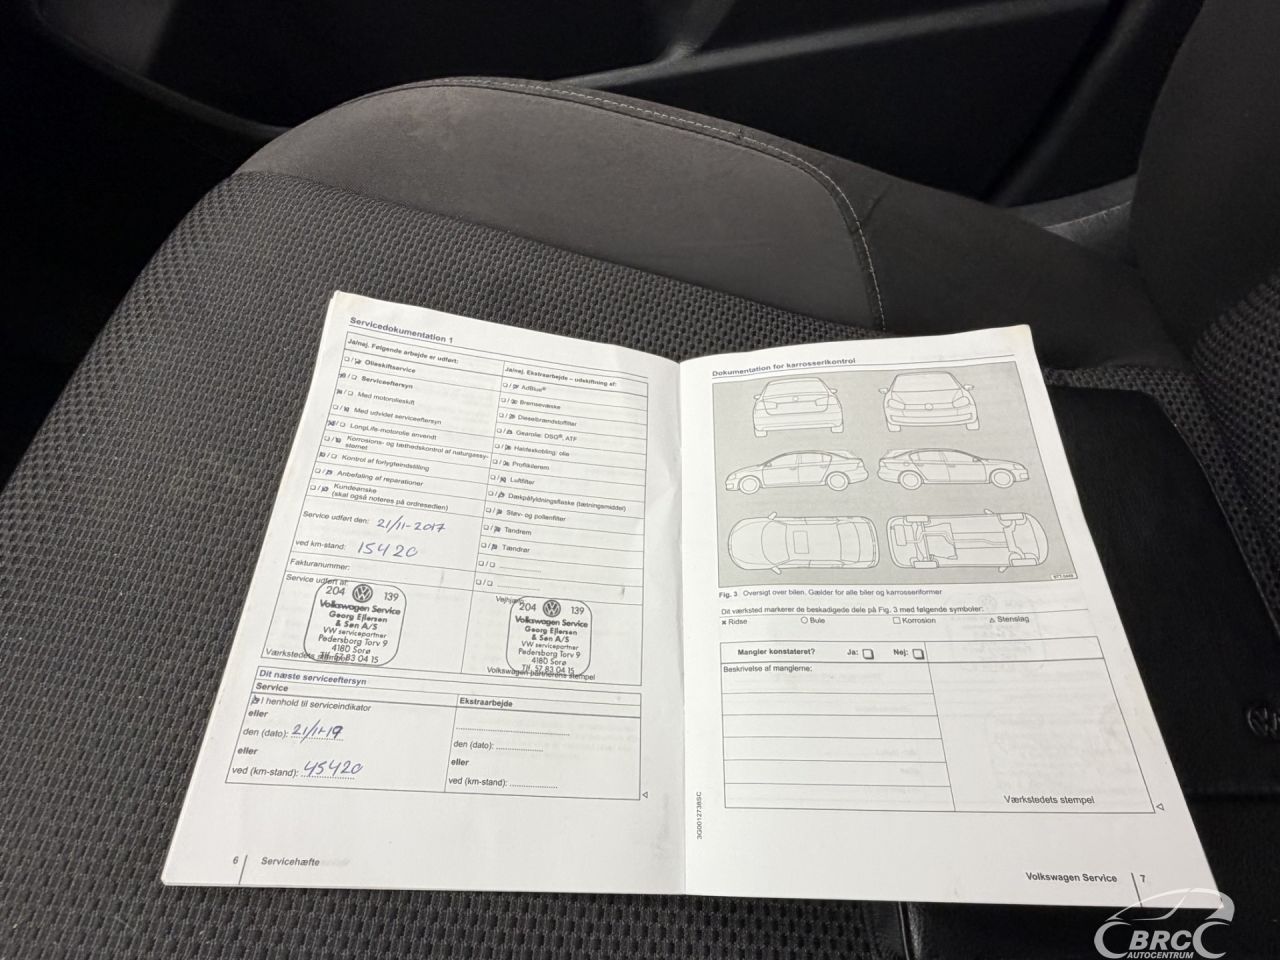 Servicedokumentation 1
Ja/nej. Følgende arbejde er udført:
Olieskiftservice
Serviceeftersyn
Med motorolieskift
Med udvidet serviceeftersyn
LongLife-motorolie anvendt
Korrosions- og tæthedskontrol af naturgassy-
stemet
Kontrol af forlygteindstilling
Anbefaling af reparationer
Kundeønske
(skal også noteres på ordresedlen)
Service udført den: 21/11-2017
ved km-stand: 15420
Fakturanummer:
Service udført af:
204 139
Volkswagen Service
Georg Ejlersen
& Søn A/S
VW servicepartner
Pedersborg Torv 9
4180 Sorø
Tlf. 57 83 04 15
Værkstedets stempel
Ja/nej. Ekstraarbejde – udskiftning af:
AdBlue®
Bremsevæske
Dieselbrændstoffilter
Gearolie: DSG®, ATF
Haldexkobling: olie
Profilkilerem
Luftfilter
Dækpåfyldningsflaske (tætningsmiddel)
Støv- og pollenfilter
Tandrem
Tændrør
204 139
Volkswagen Service
Georg Ejlersen
& Søn A/S
VW servicepartner
Pedersborg Torv 9
4180 Sorø
Tlf. 57 83 04 15
Volkswagen partnerens stempel
Dit næste serviceeftersyn
Service
I henhold til serviceindikator
eller
den (dato): 21/11-19
eller
ved (km-stand): 45420
Ekstraarbejde
den (dato):
eller
ved (km-stand):
6 Servicehæfte
Dokumentation for karrosserikontrol
Fig. 3 Oversigt over bilen. Gælder for alle biler og karrosseriformer
Dit værksted markerer de beskadigede dele på Fig. 3 med følgende symboler:
× Ridse ○ Bule □ Korrosion △ Stenslag
Mangler konstateret? Ja: Nej:
Beskrivelse af manglerne:
Værkstedets stempel
3G0012738SC
Volkswagen Service 7
BRC
AUTOCENTRUM